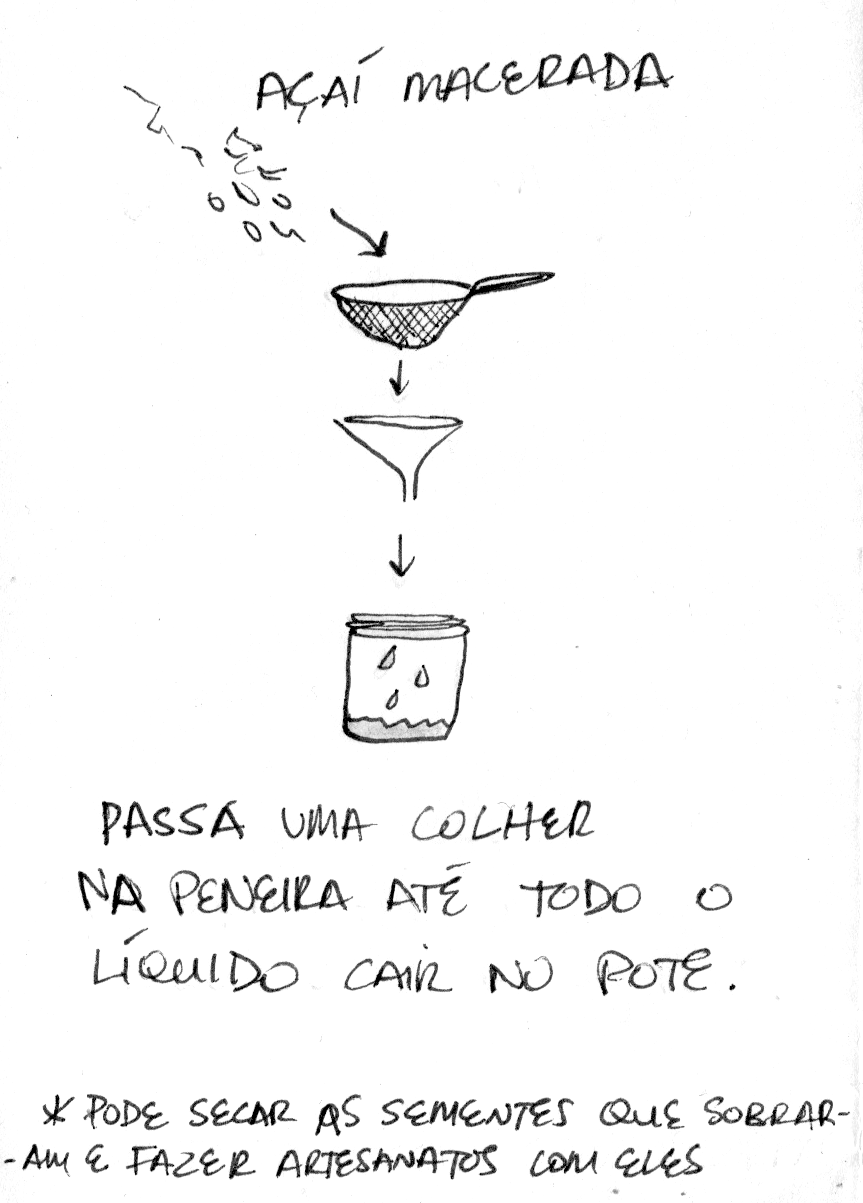 AÇAÍ MACERADA
PASSA UMA COLHER
NA PENEIRA ATÉ TODO O
LÍQUIDO CAIR NO POTE.
* PODE SECAR AS SEMENTES QUE SOBRAR-
-AM E FAZER ARTESANATOS COM ELES